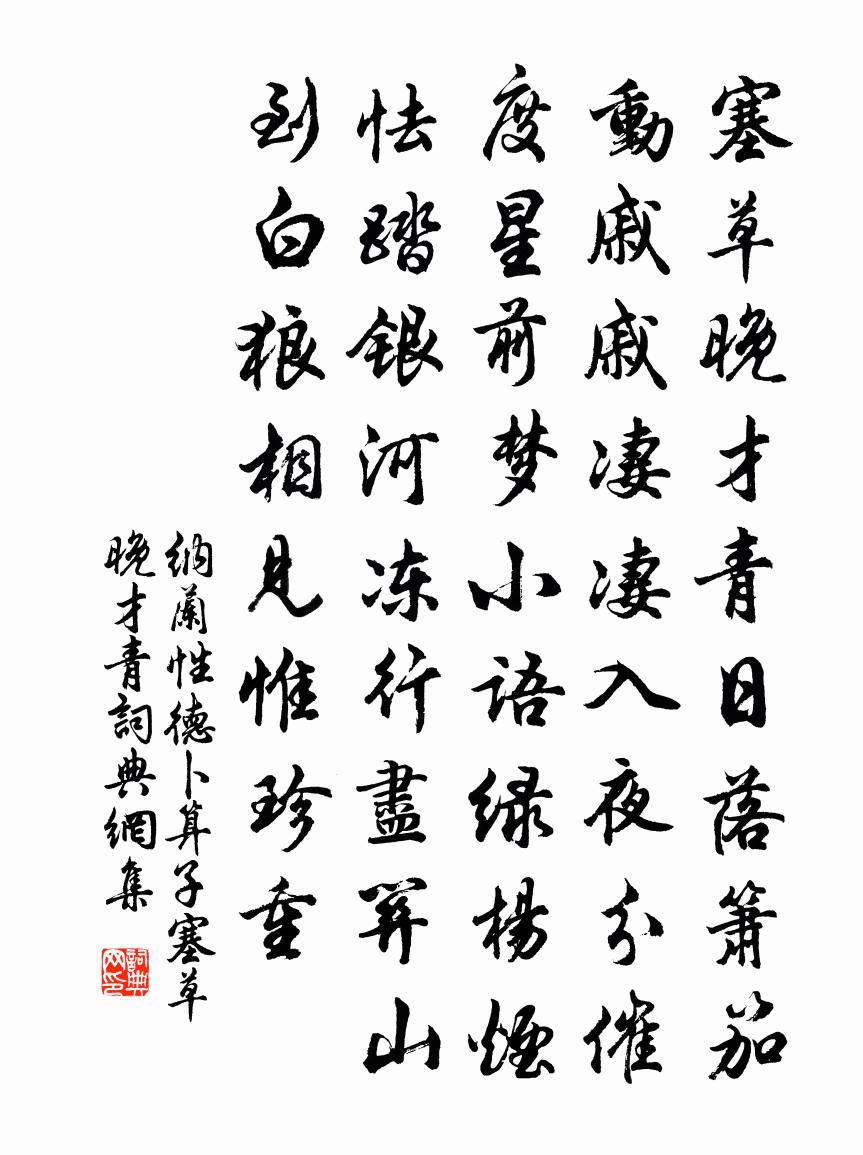 塞草晚才青日落簫笳
動戚戚凄凄入夜分催
度星前梦小語绿楊煙
怯踏銀河冻行盡関山
到白狼相見惟珍重
納蘭性德卜算子塞草
晚才青詞典網集
詞典网印